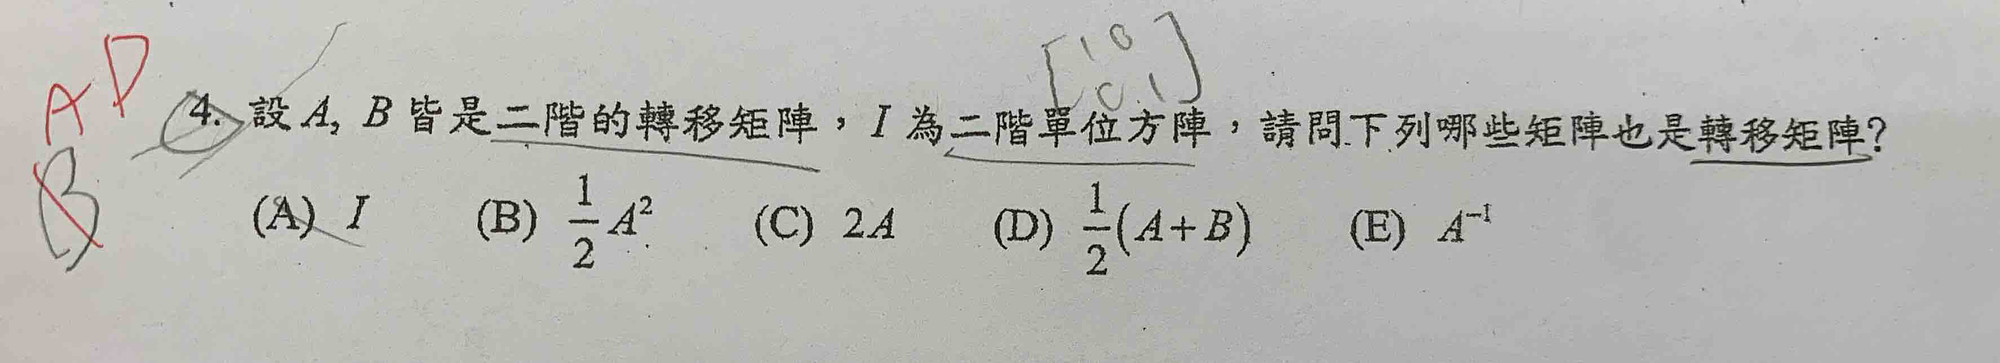 [1 0
0 1]
AD
B
4. 設 A, B 皆是二階的轉移矩陣，I 為二階單位方陣，請問下列哪些矩陣也是轉移矩陣?
(A) I (B) 1/2 A² (C) 2A (D) 1/2(A+B) (E) A⁻¹